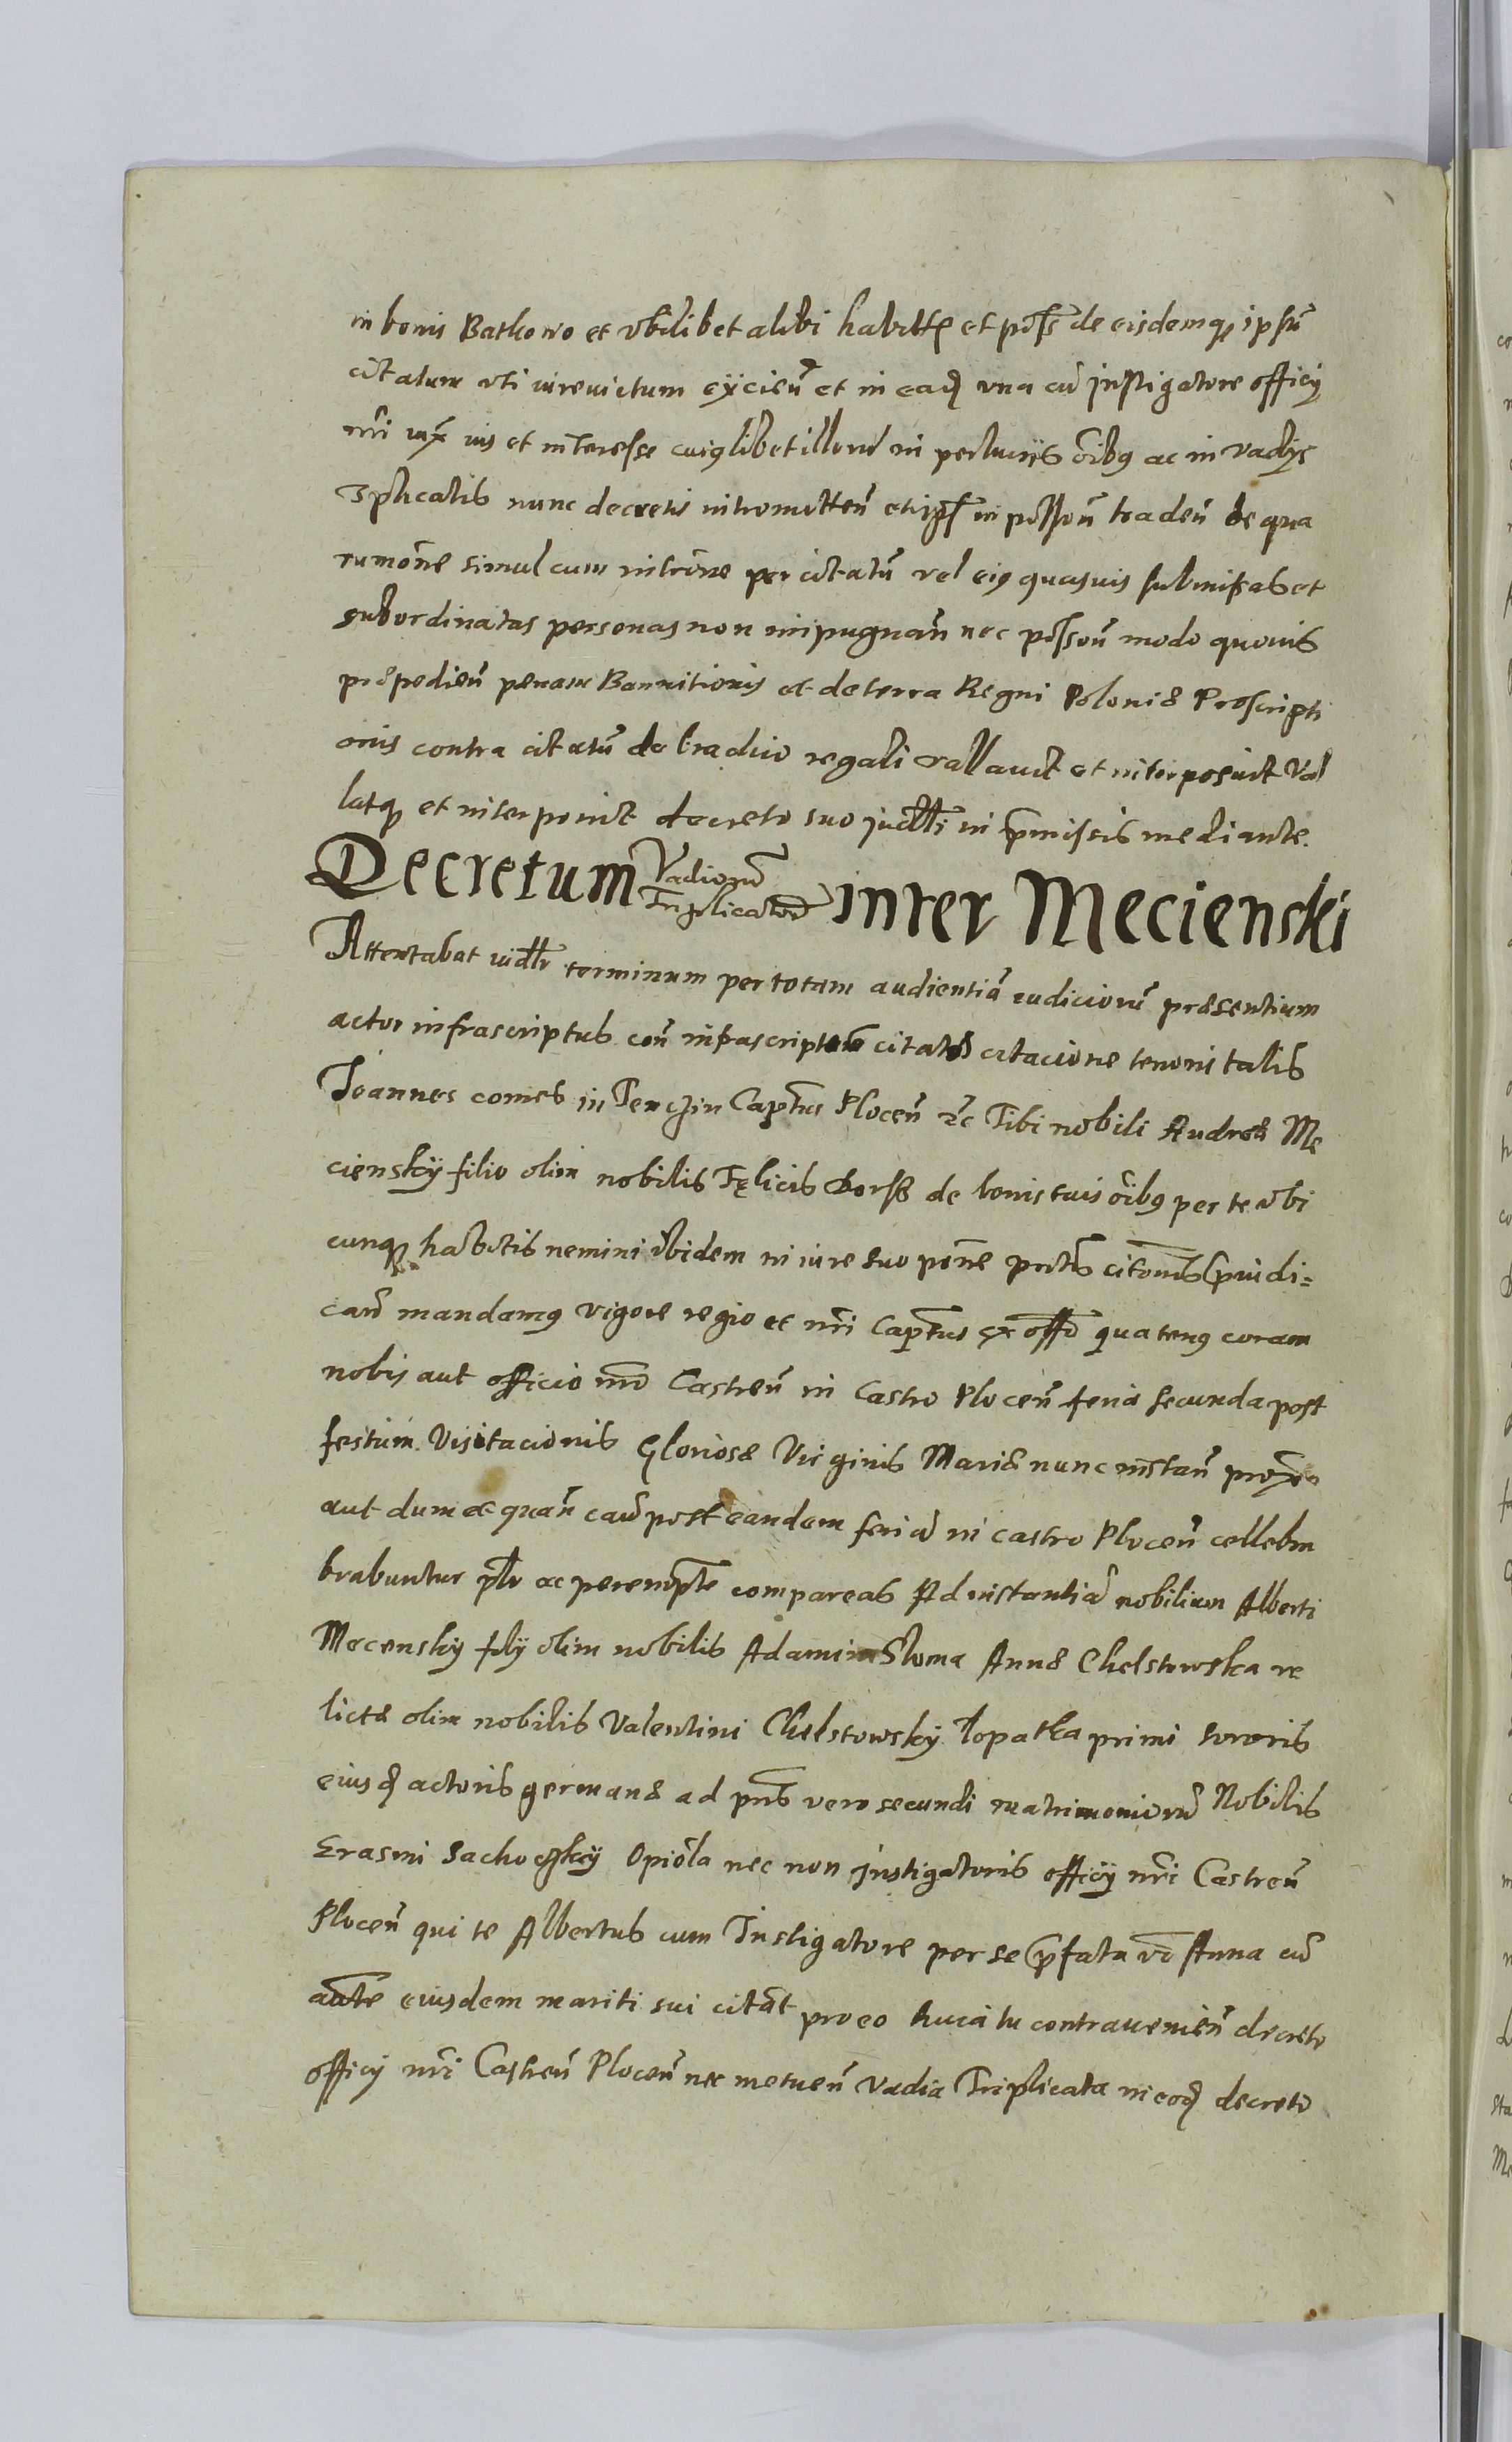 in bonis Batkowo et vbilibet alibi habitt et poss de eisdemq ipsū
citatum vti iurevictum eÿcien̄ et in eaq vna cū Instigatore officÿ
nr̄i iux ius et interesse cuiqlibet illorū in perlucriis oībq ac in vadÿs
3plicatis nunc decretis intromitten̄ et ips in possōn̄ traden̄ de qua
rumōne simul cum intrōne per citatū vel eiq quasuis submissas et
subordinatas personas non impugnan̄ nec possōn̄ modo quouis
præpedien̄ pænam Bannitionis et de terra Regni Poloniæ Proscripti
onis contra citatū de brachio regali vallauit et interposuit Val
latq et interponit decreto suo juddli in p̄missis mediante.
Decretum Vadiorū Triplicatorū inter Mecienski
Attentabat viddlr terminum per totam audientiā iudiciorū præsentium
actor infrascriptus con̄ infrascriptum citatū citacione tenoris talis
Ioannes comes in Tenczin Captūs Plocen̄ rc Tibi nobili Andreæ Me
cienskÿ filio olim nobilis Fęlicis Borsæ de bonis tuis oībq per te vbi
cunq habitis nemini ibidem in iure suo pōne pntis citōnis p̄iudi=
can̄ mandamq vigore regio et nr̄i Captūs ex offō quatenq coram
nobis aut officio nr̄o Castren̄ in Castro Plocen̄ feria secunda post
festum Visitacionis Gloriosæ Virginis Mariæ nunc instan̄ proxa
aut dum et quan̄ cau post eandem feriā in castro Plocen̄ cellebra
brabuntur plr ac perempte compareas Ad instantiā nobilium Alberti
Mecenskÿ filÿ olim nobilis Adami Sloma Annæ Chelstowska re
lictæ olim nobilis Valentini Chelstowskÿ Lopatka primi sororis
eiusq actoris germanæ ad pn̄s vero secundi matrimoniorū Nobilis
Erasmi Sachoczkÿ Opiola nec non Instigatoris officÿ nr̄i Castren̄
Plocen̄ qui te Albertus cum Instigatore per se p̄fata vō Anna cū
aūte eiusdem mariti sui citant pro eo quia tu contrauenien̄ decreto
officÿ nr̄i Castren̄ Plocen̄ nec metuen̄ Vadia Triplicata in eoq decreto